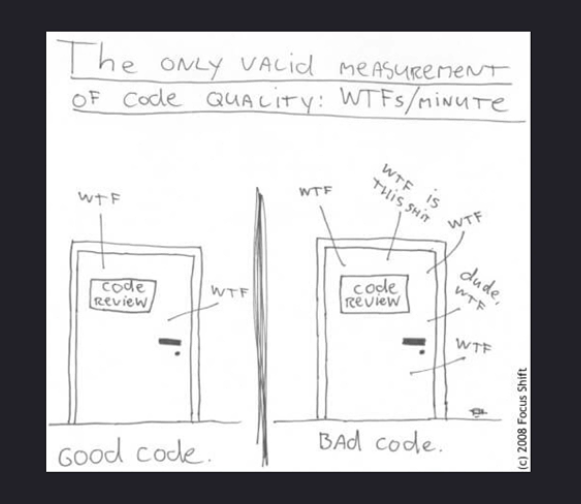 The ONLY VALid MEASUREMENT
OF Code QUALITY: WTFs/MINUTE
WTF
code
REVIEW
WTF
Good code.
WTF
WTF is
THIS SHIT
WTF
code
REVIEW
dude,
WTF
WTF
BAd code.
(c) 2008 Focus Shift